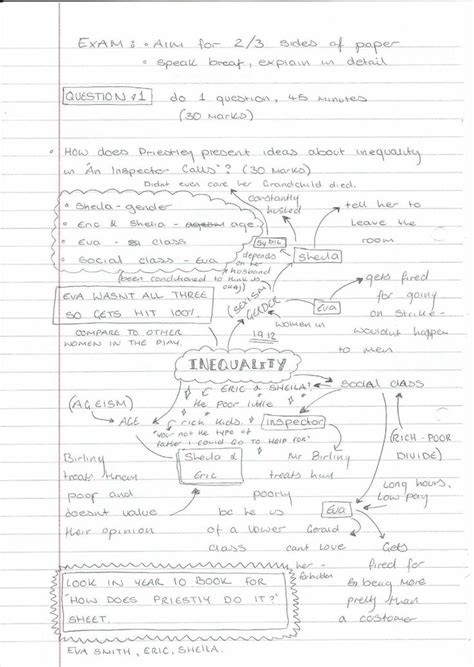 EXAM: • AIM for 2/3 sides of paper
• speak breaf, explain in detail
QUESTION 1 do 1 question, 45 minutes
(30 marks)
• HOW does Priestley present ideas about inequality
in 'An Inspector Calls'? (30 marks)
Didnt even care her Grandchild died.
• Sheila - gender
• Eric & Sheila - age.
• Eva - class
• Social class - Eva
constantly
hushed
tell her to
leave the
room
Sybil
Sheila
depends
on her
husband
(been conditioned to think its
okay)
EVA WASNT ALL THREE
SO GETS HIT 100%.
COMPARE TO OTHER
WOMEN IN THE PLAY.
(SEXISM)
GENDER
Eva
gets fired
for going
on strike -
wouldnt happen
to men
women in
1912
INEQUALITY
ERIC & SHEILA?
the poor little
rich kids.
Social class
(AGEISM)
AGE
Inspector
"your not the type of
father I could go to help for"
(RICH-POOR
DIVIDE)
Birling
treats them
poor and
doesnt value
their opinion
Sheila &
Eric
Mr Birling
treats him
poorly
bc he us
of a lower
class
Long hours,
Low pay
Eva
Gerald
cant love
her -
forbidden
Gets
fired for
being more
pretty than
a costomer
LOOK IN YEAR 10 BOOK FOR
'HOW DOES PRIESTLY DO IT?'
SHEET.
EVA SMITH, ERIC, SHEILA.